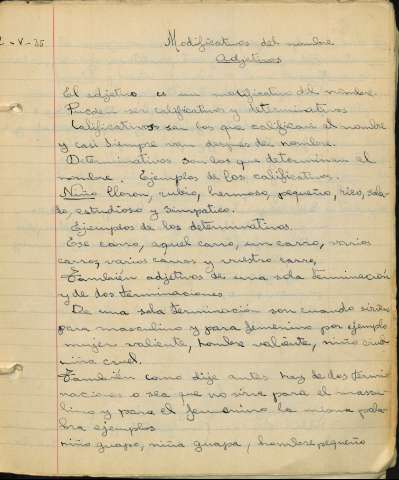 2-V-35
Modificativos del nombre
Adjetivos
El adjetivo es un modificativo del nombre.
Pueden ser calificativos y determinativos
Calificativos son los que califican al nombre
y casi siempre van después del nombre.
Determinativos son los que determinan el
nombre. Ejemplos de los calificativos.
Niño lloron, rubio, hermoso, pequeño, rico, sala-
do, estudioso y simpatico.
Ejemplos de los determinativos.
Ese carro, aquel carro, un carro, varios
carros, varios carros y vuestro carro,
También adjetivos de una sola terminación
y de dos terminaciones.
De una sola terminación son cuando sirven
para masculino y para femenino por ejemplo
mujer valiente, hombre valiente, niño cruel
niña cruel.
También como dije antes hay de dos termi
naciones o sea que no sirve para el mascu-
lino y para el femenino la misma pala-
bra ejemplos
niño guapo, niña guapa, hombre pequeño